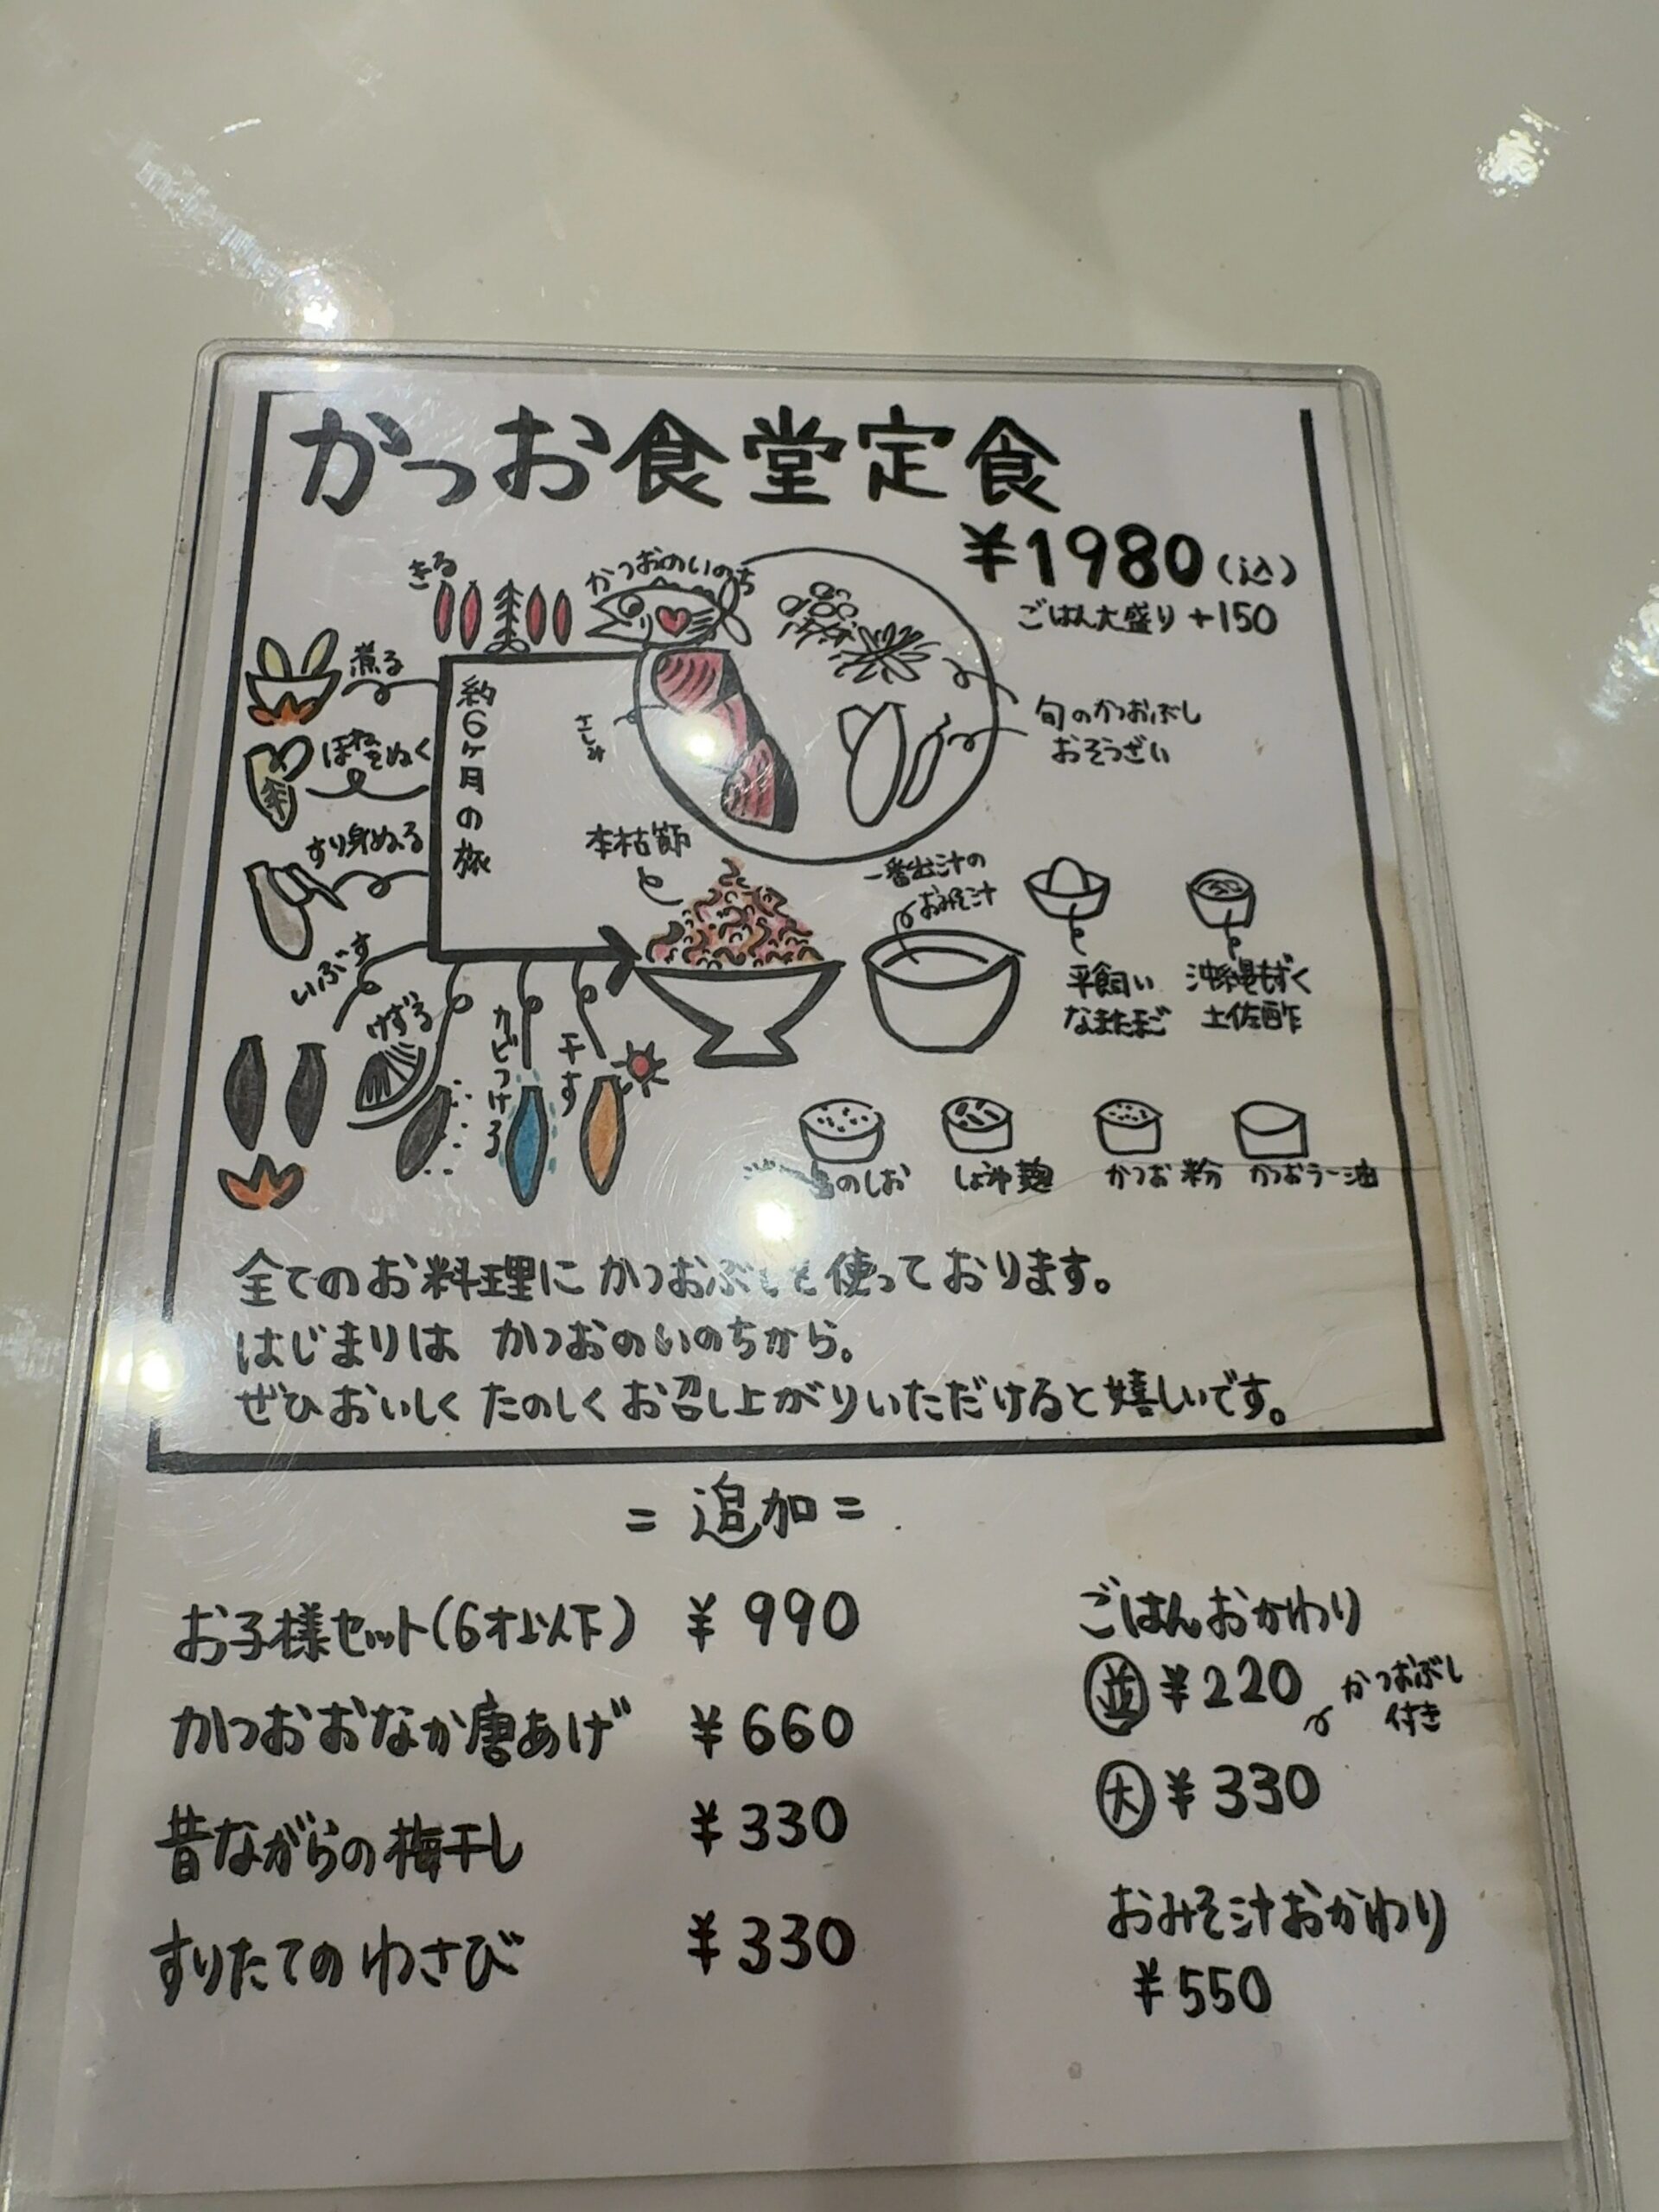 かつお食堂定食
¥1980(込)
ごはん大盛り +150
きる
かつおのいのち
煮る
ほねをぬく
すり身ぬる
いぶす
けずる
カビつける
干す
約6ヶ月の旅
さしみ
旬のかつおぶし
おそうざい
本枯節
一番出汁の
おみそ汁
平飼い
なまたまご
沖縄もずく
土佐酢
のしお
しょうゆ麹
かつお粉
かつおラー油
全てのお料理に かつおぶしを使っております。
はじまりは かつおのいのちから。
ぜひおいしく たのしく お召し上がりいただけると嬉しいです。
= 追加 =
お子様セット(6才以下) ¥990
かつおおなか唐あげ ¥660
昔ながらの梅干し ¥330
すりたてのわさび ¥330
ごはんおかわり
並 ¥220
かつおぶし
付き
大 ¥330
おみそ汁おかわり
¥550